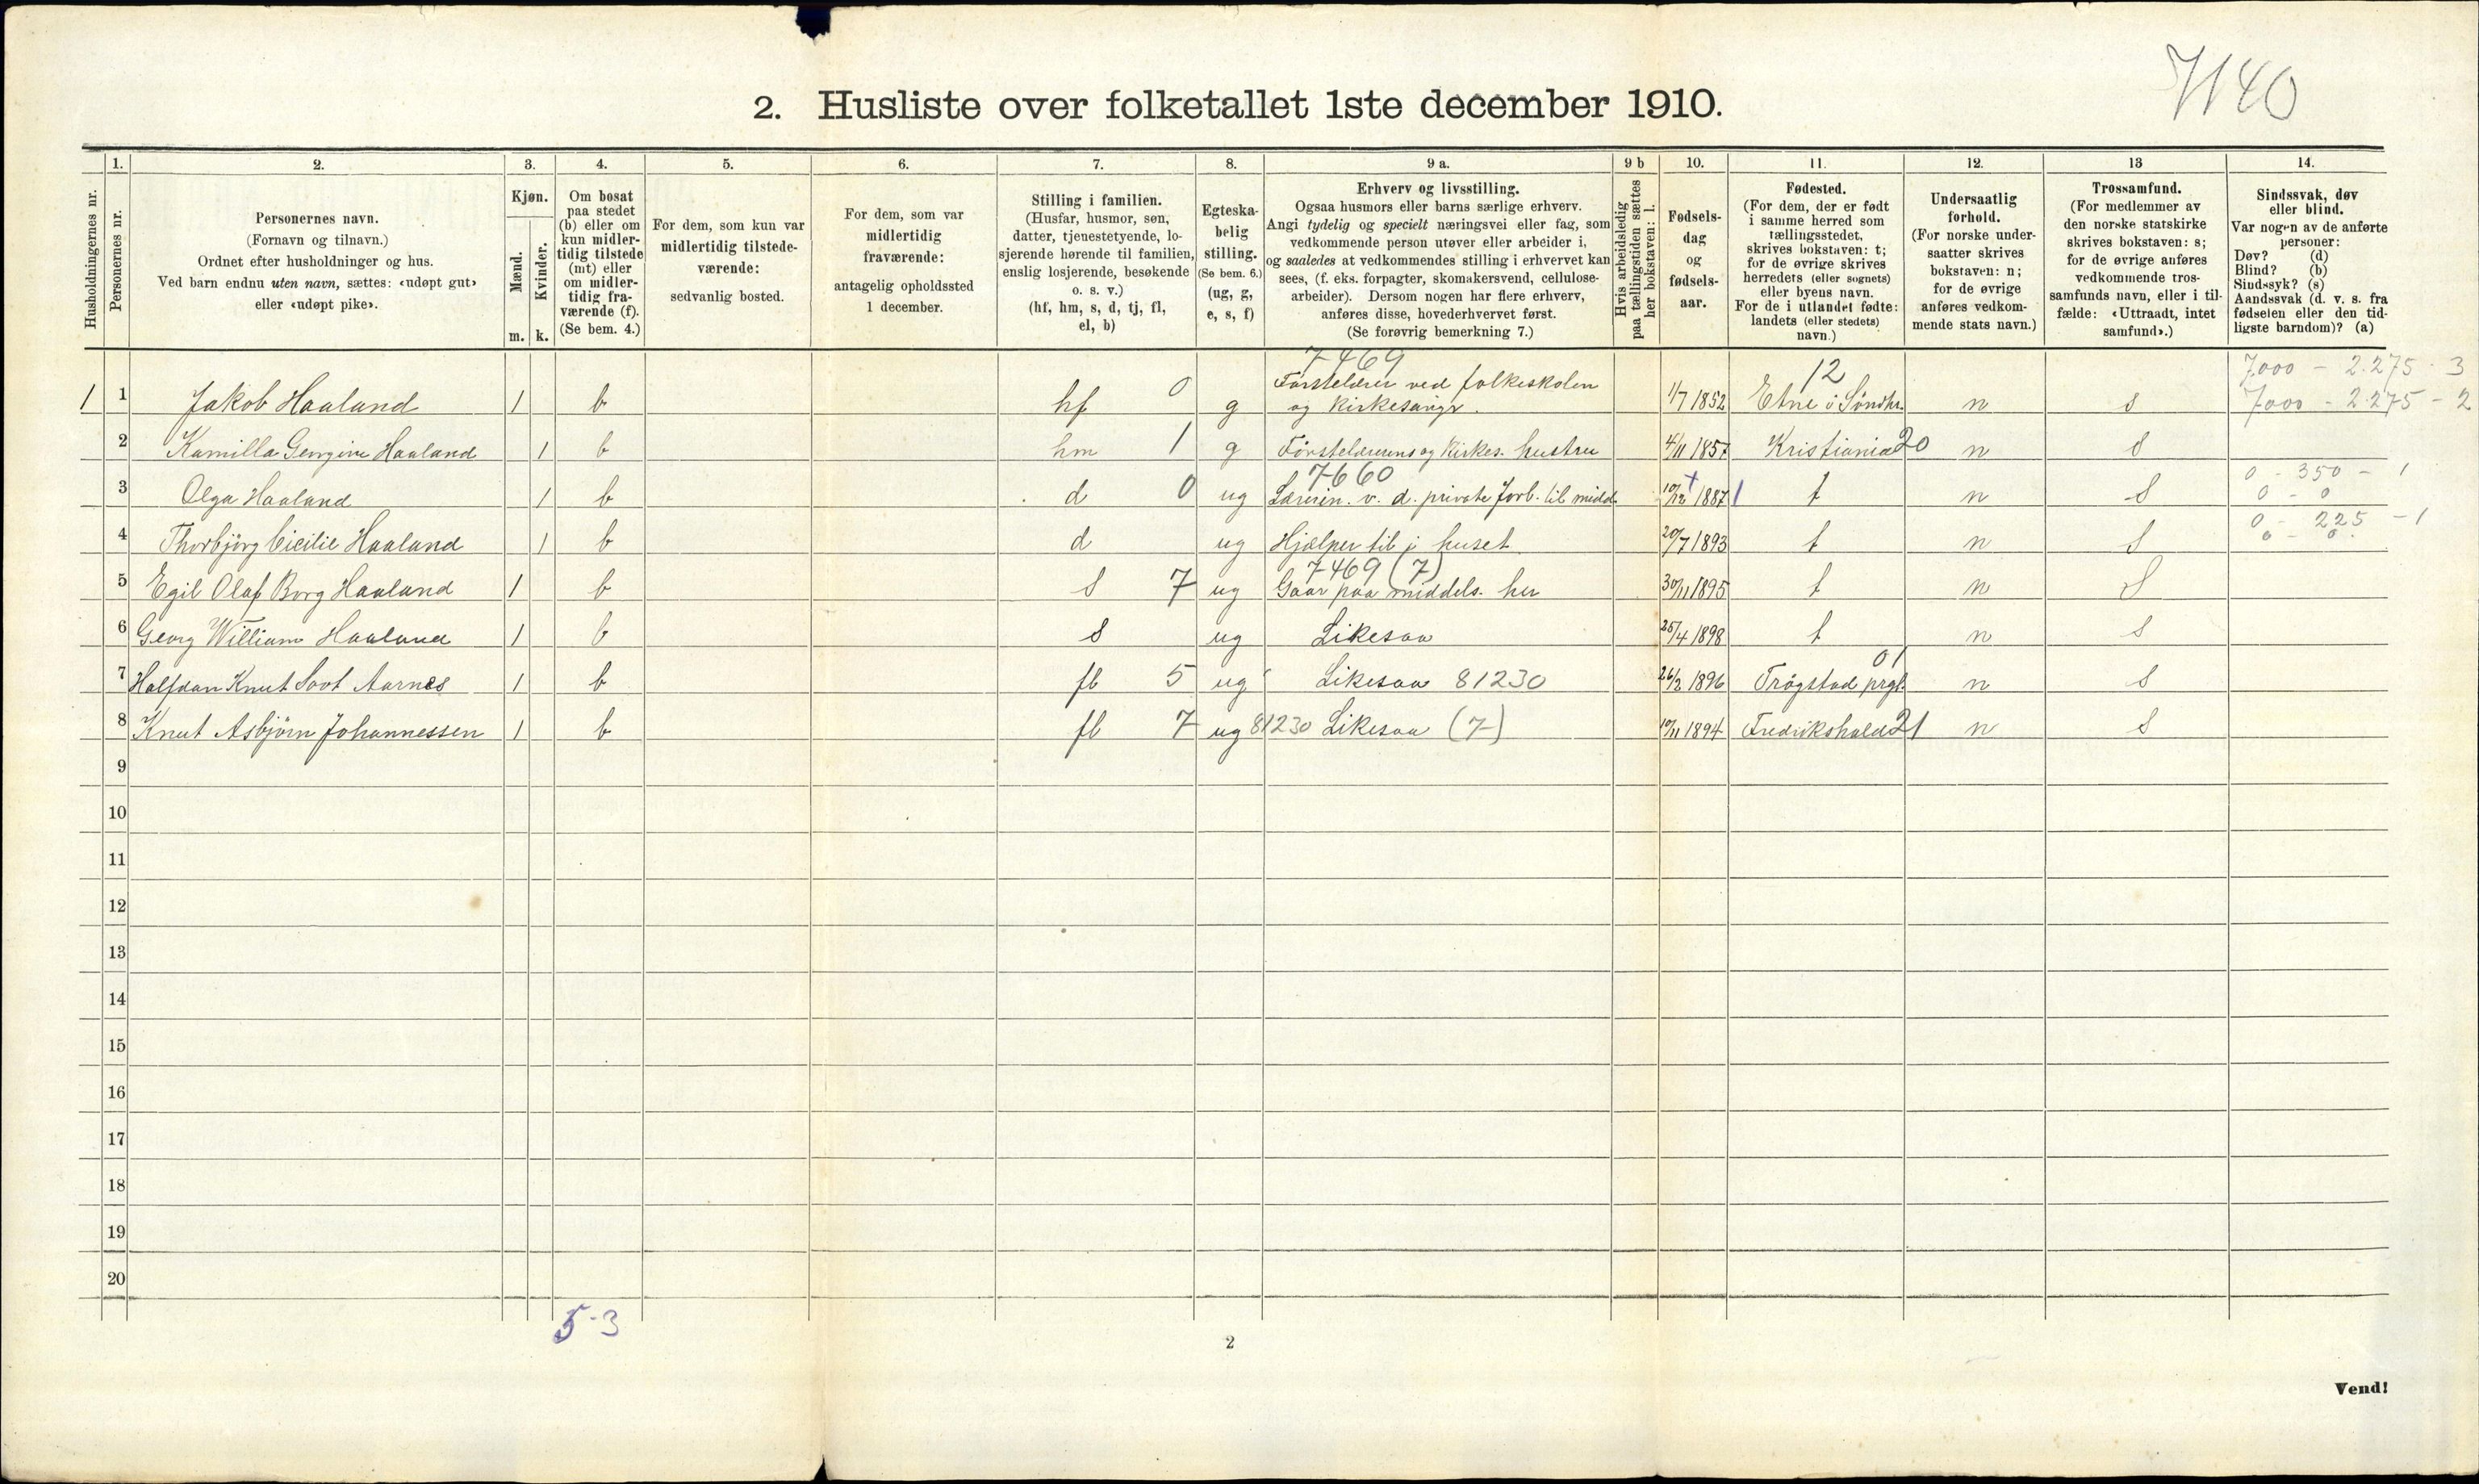 7140
2. Husliste over folketallet 1ste december 1910.
1. 2. 3. 4. 5. 6. 7. 8. 9 a. 9 b 10. 11. 12. 13 14.
Husholdningernes nr.
Personernes nr.
Personernes navn.
(Fornavn og tilnavn.)
Ordnet efter husholdninger og hus.
Ved barn endnu uten navn, sættes: «udøpt gut»
eller «udøpt pike».
Kjøn.
Mænd.
Kvinder.
m. k.
Om bosat
paa stedet
(b) eller om
kun midler-
tidig tilstede
(mt) eller
om midler-
tidig fra-
værende (f).
(Se bem. 4.)
For dem, som kun var
midlertidig tilstede-
værende:
sedvanlig bosted.
For dem, som var
midlertidig
fraværende:
antagelig opholdssted
1 december.
Stilling i familien.
(Husfar, husmor, søn,
datter, tjenestetyende, lo-
sjerende hørende til familien,
enslig losjerende, besøkende
o. s. v.)
(hf, hm, s, d, tj, fl,
el, b)
Egteska-
belig
stilling.
(Se bem. 6.)
(ug, g,
e, s, f)
Erhverv og livsstilling.
Ogsaa husmors eller barns særlige erhverv.
Angi tydelig og specielt næringsvei eller fag, som
vedkommende person utøver eller arbeider i,
og saaledes at vedkommendes stilling i erhvervet kan
sees, (f. eks. forpagter, skomakersvend, cellulose-
arbeider). Dersom nogen har flere erhverv,
anføres disse, hovederhvervet først.
(Se forøvrig bemerkning 7.)
Hvis arbeidsledig
paa tællingstiden sættes
her bokstaven: l.
Fødsels-
dag
og
fødsels-
aar.
Fødested.
(For dem, der er født
i samme herred som
tællingsstedet,
skrives bokstaven: t;
for de øvrige skrives
herredets (eller sognets)
eller byens navn.
For de i utlandet fødte:
landets (eller stedets)
navn.)
Undersaatlig
forhold.
(For norske under-
saatter skrives
bokstaven: n;
for de øvrige
anføres vedkom-
mende stats navn.)
Trossamfund.
(For medlemmer av
den norske statskirke
skrives bokstaven: s;
for de øvrige anføres
vedkommende tros-
samfunds navn, eller i til-
fælde: «Uttraadt, intet
samfund».)
Sindssvak, døv
eller blind.
Var nogen av de anførte
personer:
Døv? (d)
Blind? (b)
Sindssyk? (s)
Aandssvak (d. v. s. fra
fødselen eller den tid-
ligste barndom)? (a)
7469 12 7.000 - 2.275 - 3
Førstelærer ved folkeskolen
1 1 Jakob Haaland 1 b hf 0 g og Kirkesanger. 1/7 1852 Etne i Söndhr. n s 7000 - 2.275 - 2
2 Kamilla Georgine Haaland 1 b hm 1 g Förstelærerens og Kirkes. hustru 4/11 1857 Kristiania 20 n s
7660 0 - 350 - 1
3 Olga Haaland 1 b d 0 ug Lærerin. v. d. private forb. til midd 10/12 1887 t n s 0 - 0
0 - 225 - 1
4 Thorbjörg Cicilie Haaland 1 b d ug Hjælper til i huset 20/7 1893 t n s 0 - 0.
7469 (7)
5 Egil Olaf Borg Haaland 1 b s 7 ug Gaar paa middels. her 30/11 1895 t n s
6 Georg William Haaland 1 b s ug Likesaa 25/4 1898 t n s
01
7 Halfdan Knut Soot Aarnes 1 b fl 5 ug Likesaa 81230 26/2 1896 Trögstad prgl. n s
8 Knut Asbjörn Johannessen 1 b fl 7 ug 81230 Likesaa (7) 10/11 1894 Fredrikshald 21 n s
9
10
11
12
13
14
15
16
17
18
19
20
5-3
2
Vend!